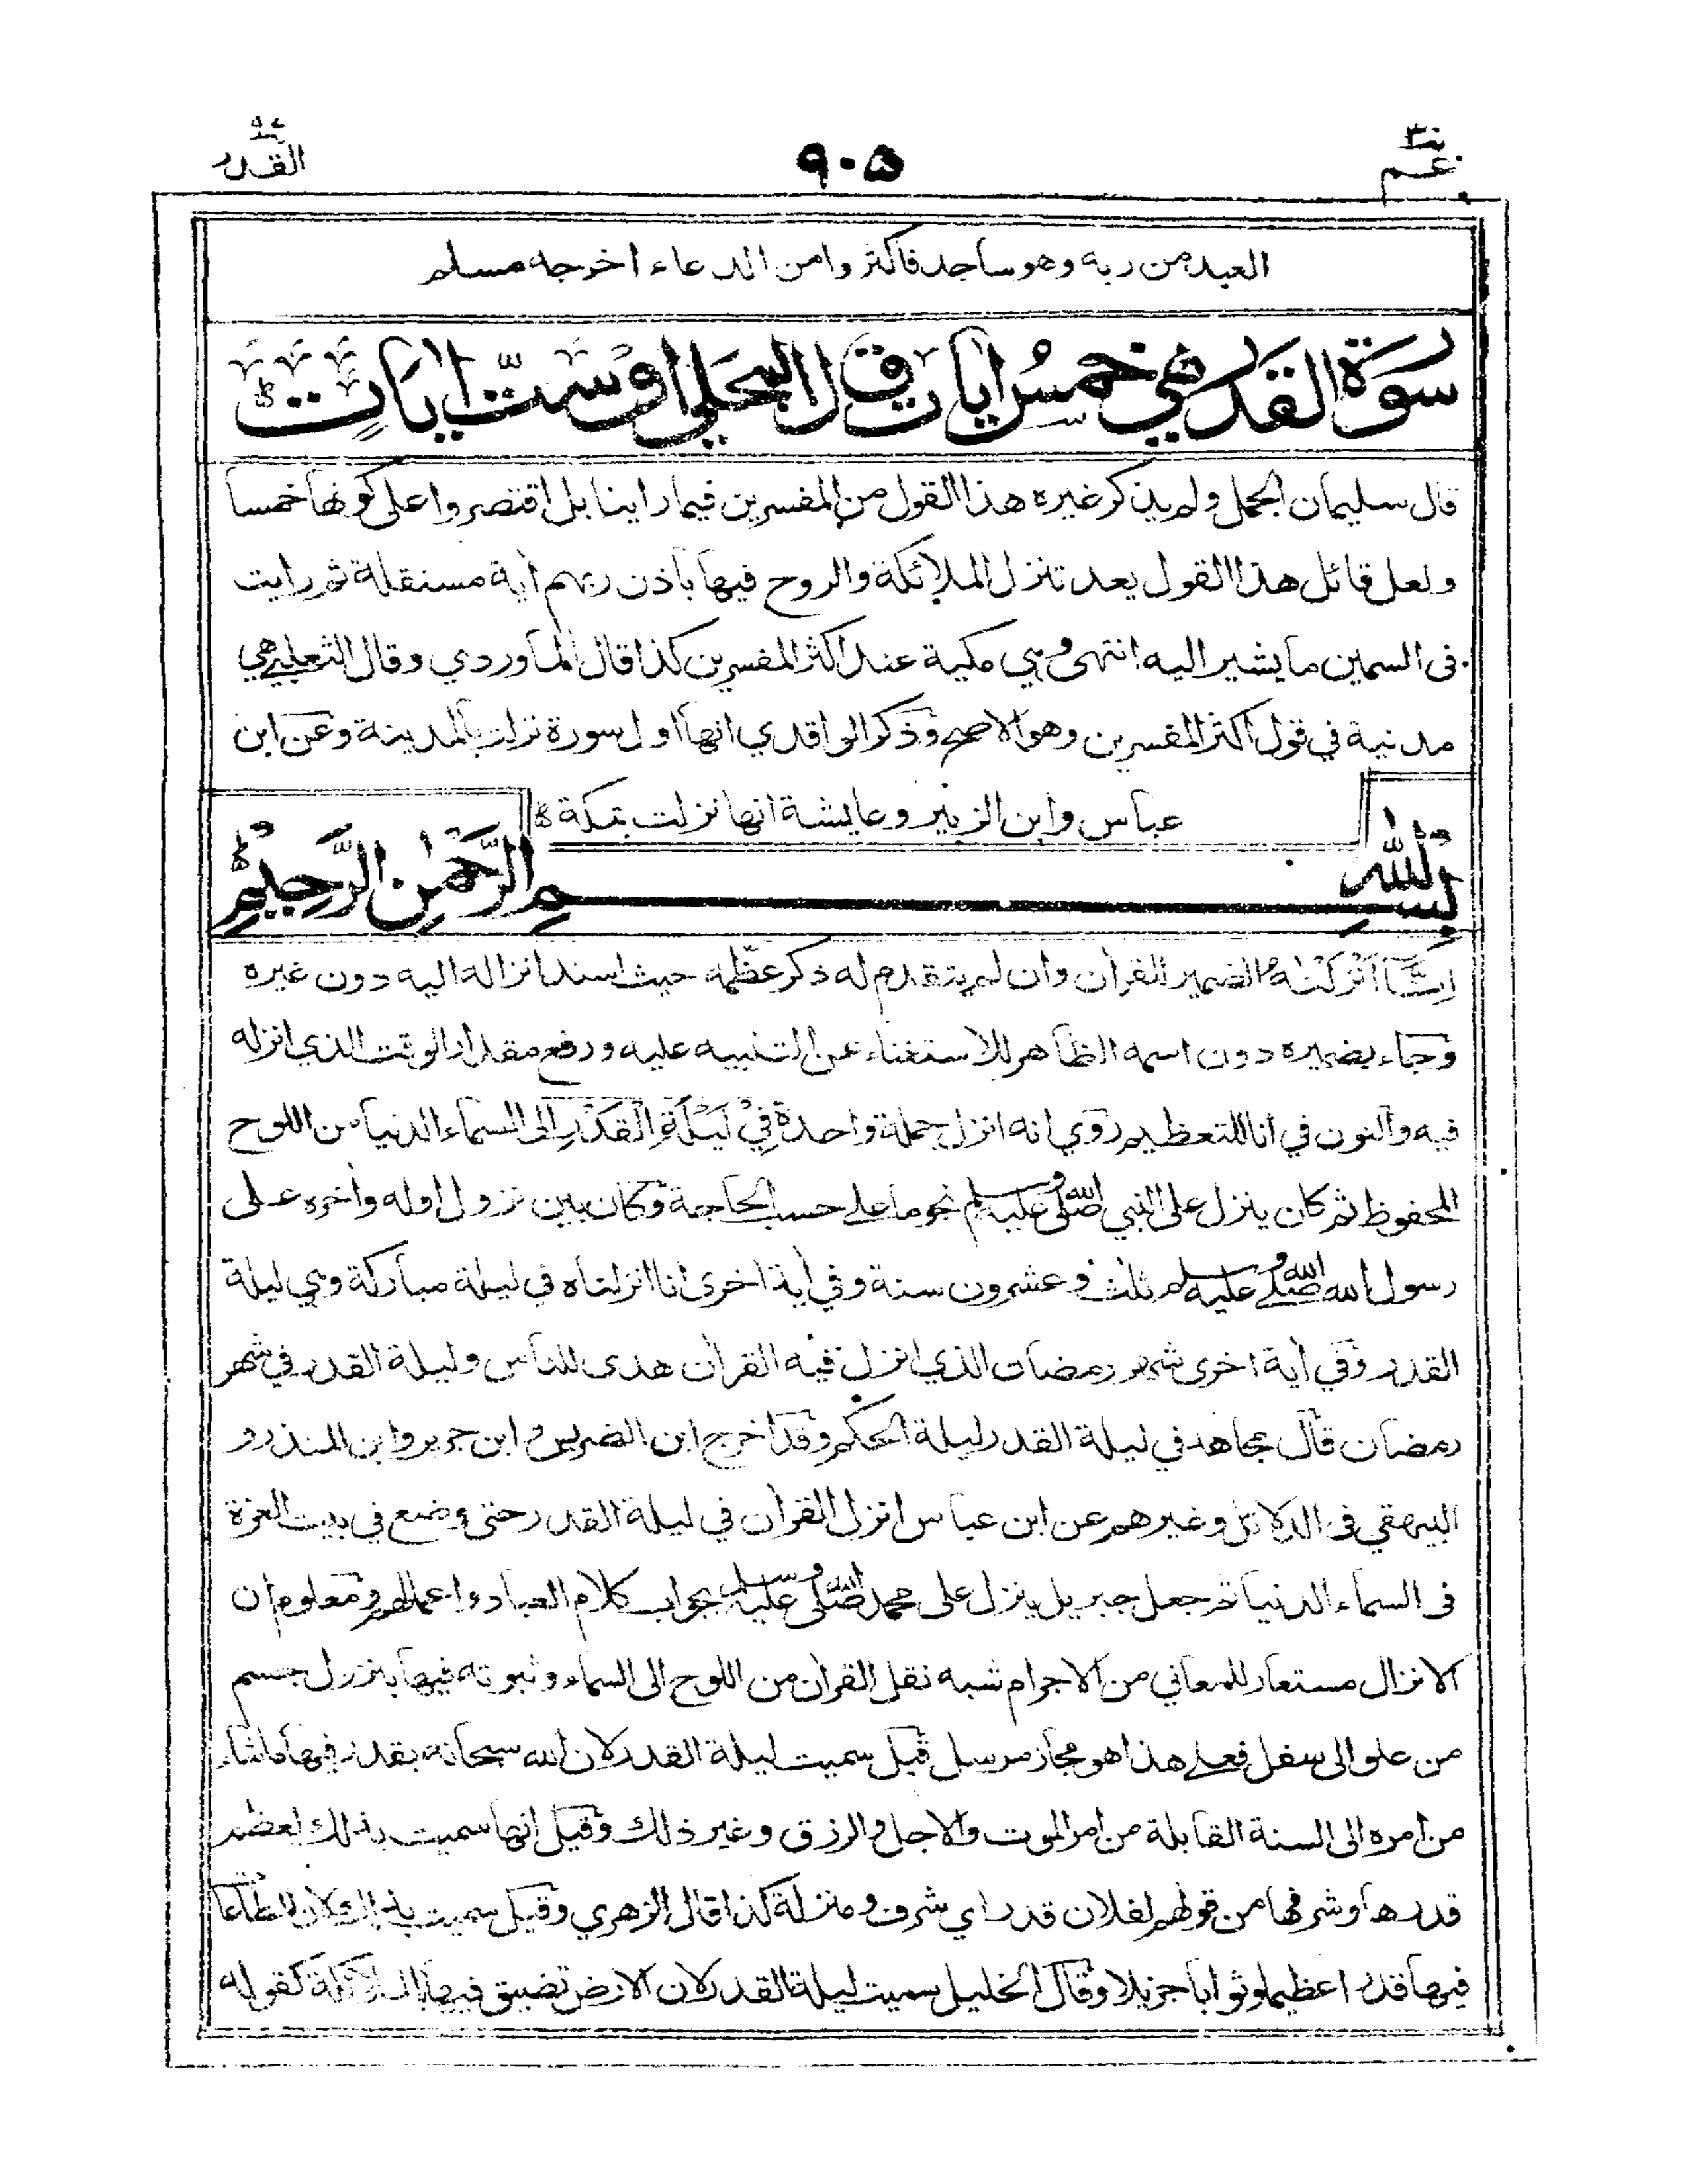 عم ٣٠
٩٠٥
القدر ٩٧
العبد من ربه وهو ساجد فاكثروا من الدعاء اخرجه مسلم
سورة القدر هي خمس ايات وقال المحلي او ست ايات
قال سليمان الجمل ولم يذكر غيره هذا القول من المفسرين فيما راينا بل اقتصروا على كونها خمسا
ولعل قائل هذا القول يعد تنزل الملائكة والروح فيها باذن ربهم أية مستقلة ثم رايت
فى السمين ما يشير اليه انتهى وهي مكية عند اكثر المفسرين كذا قال الماوردي وقال الثعلبي هي
مدنية في قول اكثر المفسرين وهو الاصح وذكر الواقدي انها اول سورة نزلت بالمدينة وعن ابن
عباس وابن الزبير وعايشة انها نزلت بمكة
بسم الله الرحمن الرحيم
إِنَّا أَنْزَلْنٰهُ الضمير للقرأن وان لم يتقدم له ذكر عظمه حيث اسند انزاله اليه دون غيره
وجاء بضميره دون اسمه الظاهر للاستغناء عن التنبيه عليه ورفع مقدار الوقت الذي انزله
فيه والنون في انا للتعظيم روي انه انزل جملة واحدة فِيْ لَيْلَةِ الْقَدْرِ الى السماء الدنيا من اللوح
المحفوظ ثم كان ينزل على النبي صلى الله عليه وسلم نجوما على حسب الحاجة وكان بين نزول اوله وأخره على
رسول الله صلى الله عليه وسلم ثلث وعشرون سنة وفي أية اخرى انا انزلناه في ليلة مباركة وهي ليلة
القدر وفي أية اخرى شهر رمضان الذي انزل فيه القرأن هدى للناس وليلة القدر في شهر
رمضان قال مجاهد في ليلة القدر ليلة الحكم وقد اخرج ابن الضريس وابن جرير وابن المنذر و
البيهقي فى الدلائل وغيرهم عن ابن عباس انزل القرأن في ليلة القدر حتى وضع في بيت العزة
فى السماء الدنيا ثم جعل جبريل ينزل على محمد صلى الله عليه وسلم بجواب كلام العباد واعمالهم ومعلوم ان
الانزال مستعار للمعاني من الاجرام شبه نقل القرأن من اللوح الى السماء وثبوته فيها بنزول جسم
من علو الى سفل فعلى هذا هو مجاز مرسل قيل سميت ليلة القدر لان الله سبحانه يقدر فيها ماشاء
من امره الى السنة القابلة من امر الموت والاجل والرزق وغير ذلك وقيل انها سميت بذلك لعظم
قدرها وشرفها من قولهم لفلان قدر اي شرف ومنزلة كذا قال الزهري وقيل سميت بذلك لان للطاعات
فيها قدرا عظيما وثوابا جزيلا وقال الخليل سميت ليلة القدر لان الارض تضيق فيها بالملائكة كقوله